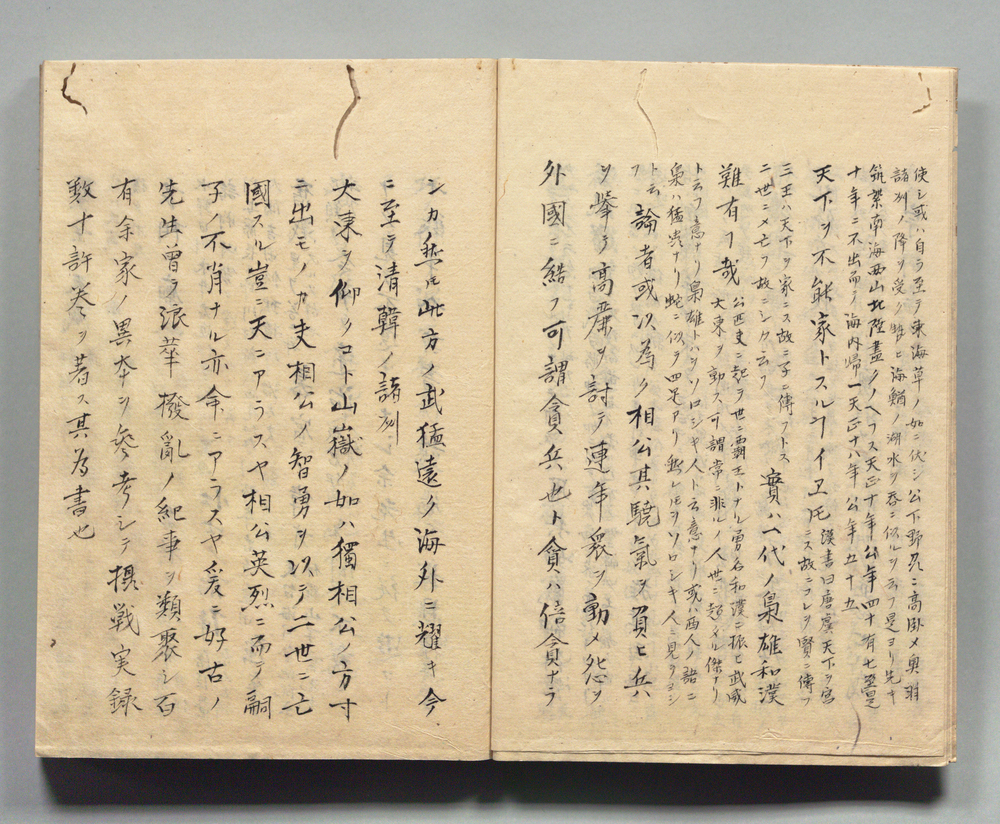 使シ或ハ自ラ至テ東海草ノ如ニ伏シ公下野尽ニ高臥メ奥羽
諸州ノ降ヲ受ク
筑紫南海西山北陸盡ク天正十年公年四十有七
十年ニ不出而テ海内帰一天正十八年公年五十五
天下ヲ不能家トスルヿイヱ𪜈
漢書曰唐虞天下ヲ官
ニス故ニコレヲ賢ニ傳フ
三王ハ天下ヲ家ニス故ニ子ニ傳フトス
實ハ一代ノ梟雄和漢
二世ニメ亡フ故ニシカ云フ
難有フ哉
公匹夫ニ起テ世ニ覇王トナル勇名和漢ニ振ヒ武威
大東ヲ動ス可謂常ニ非ルノ人世ニ超タル傑ナリ
ト云フ意ナリ梟雄トハヲソロシキ人ト云意ナリ或ハ西人ノ語ニ
梟ハ猛
ナリ蛇ニ似テ四足アリ
ヲソロシキ人ニ見ラヨシ
ト云フ
論者或以為ク相公其驍氣ヲ負ヒ兵
ヲ挙テ高麗ヲ討テ連年衆ヲ動メ怨ヲ
外國ニ結フ可謂貪兵也ト貪ハ倍貪ナラ
シカノ𪜈此方ノ武猛遠ク海外ニ耀キ今
ニ至テ清韓ノ諸州
大東ヲ仰クコト山嶽ノ如ハ獨相公ノ方寸
ニ出モノカ夫相公ノ智勇ヲ以テ二世ニ亡
國スル豈ニ天ニアラスヤ相公英烈ニ而テ嗣
子ノ不肖ナル亦命ニアラスヤ爰ニ好古ノ
先生曽テ浪華撥亂ノ紀事ヲ類聚シ百
有余家ノ異本ヲ参考シテ摂戦実録
数十許巻ヲ著ス其為書也